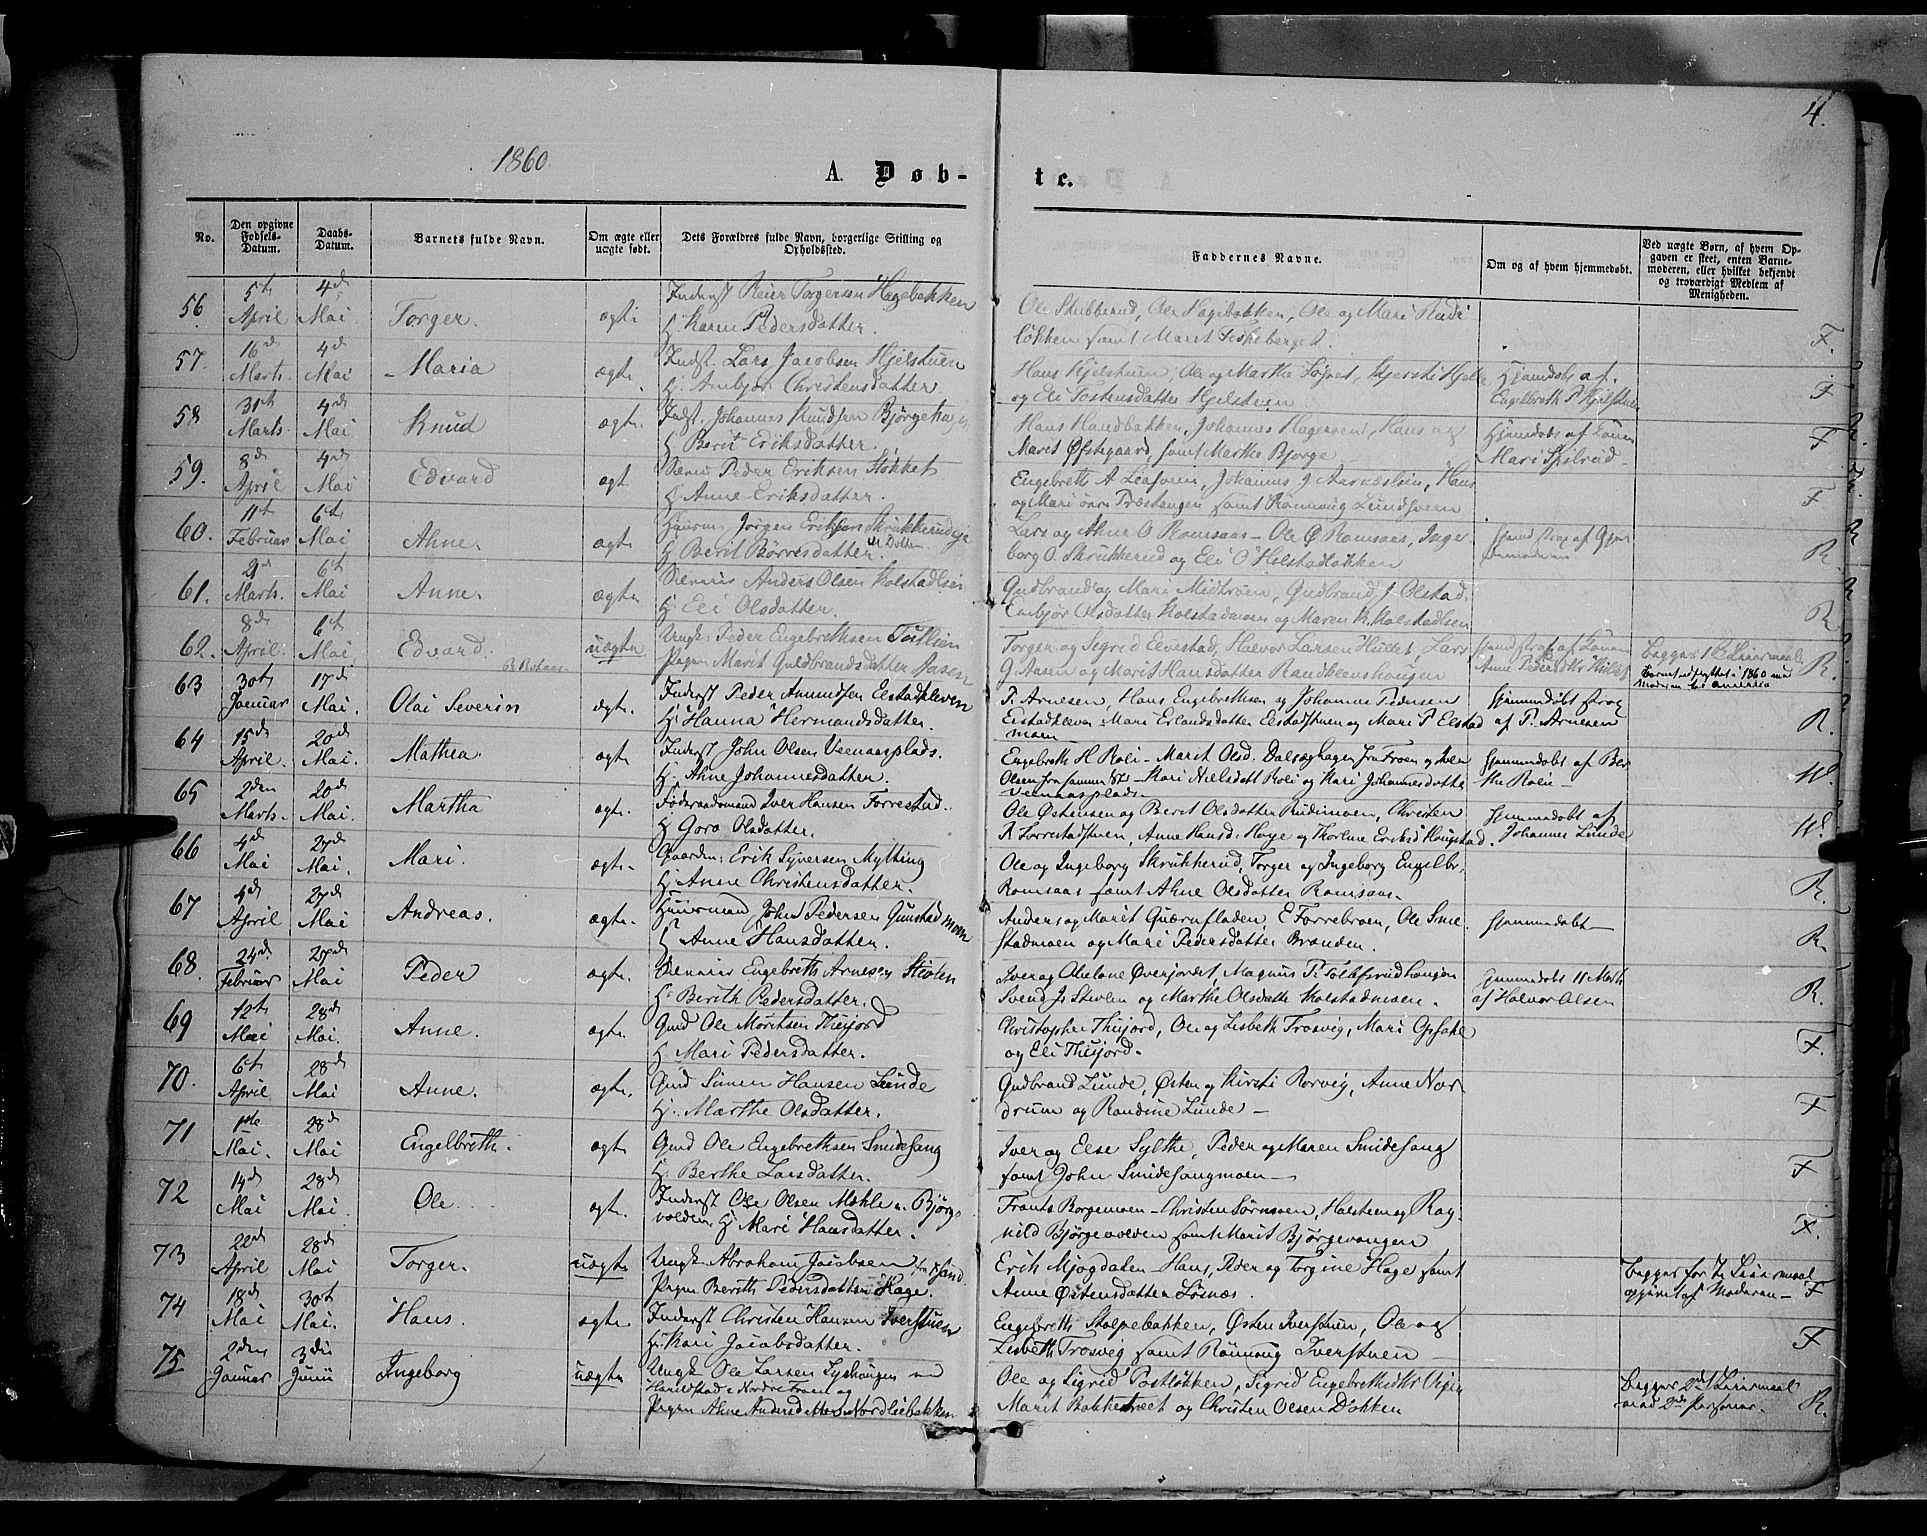 4.
1860.
A. Døb-
te.
No.
Den opgivne Fødsels-Datum.
Daabs-Datum.
Barnets fulde Navn.
Om ægte eller uægte født.
Dets Forældres fulde Navn, borgerlige Stilling og Opholdssted.
Faddernes Navne.
Om og af hvem hjemmedøbt.
Ved uægte Børn, af hvem Opgaven er skeet, enten Barnemoderen, eller hvilket bekjendt og troværdigt Medlem af Menigheden.
56 5t April 4d Mai Torger. ægte Inderst Reier Torgersen Hagebakken
H Karen Pedersdatter.
Ole Stubberud, Ole Hagebakken, Ole og Mari Rudi
løkken samt Marit Fiskeberget. F.
57. 16d Marts 4d Mai Maria ægte Indst. Lars Jacobsen Hjelstuen
H. Ambjør Christensdatter
Hans Hjelstuen, Ole og Marthe
og Eli Tostensdatter Hjelstuen
Hjemdøbt af
Engelbreth P Hjelstuen F
58 31t Marts 4d Mai Knud ægte. Indst. Johannes Knudsen Bjørgehagen
H Berit Eriksdatter.
Hans Haudbakken, Johannes Hageroen, Hans og
Marit Øfstegaard, samt Marthe Bjørge
Hjemdøbt af F
59. 8d April 4d Mai Edvard ægt Peder Eriksen Støkket
H Anne Eriksdatter.
Engebreth A Johannes J Hans
og Mari samt Rønnoug F
60. 11t Februar 6t Mai Ahne ægte Jørgen Eriksen Skrukkerudeje
H Berit Børresdatter.
Lars og Ahne O Romsaas - Ole Ø Romsaas, Inge
borg O. Skrukkerud og Eli O Holstadløkken R.
61. Marts. 6t Mai Anne. ægte Anders Olsen Kolstadlien
H. Eli Olsdatter.
Gudbrand og Mari Midtroen, Gudbrand J Olstad.
Enbjør Olsdatter Kolstadmoen og Maren K. Kolstadlien R
62. 8d April 6t Mai Edvard. uægte Ungk: Peder Engebrethsen Tostlien
Pigen Marit Guldbrandsdatter Aasen
Torger og Sigrid Elvestad, Halvor Larsen Hullet, Lars
G Aasen og Marit Hansdatter Randkleivshougen
Begges 1st Leiermaal
Barnet udflyttet i 1860 med
Moderen til America R.
63 30t Januar 17d Mai. Olai Severin ægte. Inderst Peder Amundsen Elstadkleven
H. Hanna Hermandsdatter.
P. Arnesen, Hans Engebrethsen og Johannes Pedersen
Elstadkleven Mari Erlandsdatter Elstadstuen og Mari P Elstad
moen
Hjemmedøbt strax
af P. Arnesen R.
64 15d April. 20d Mai. Mathea ægte Inderst John Olsen Veenaasplads.
H. Ahne Johannesdatter.
Engebreth H Roli - Marit Olsd. Dalseghagen fra Froen og Iver
Olsen fra samme St. - Kari Nielsdatt Roli og Kari Johannesdatter
Veenaasplads
Hjemmedøbt af Ber
the Rolie - W.
65 2den Marts. 20d Mai. Martha ægte. Føderaadsmand Iver Hansen Forrestad.
H Goro Olsdatter.
Ole Østensen og Berit Olsdatter Rudimoen, Christen
Anne Hansd. Hove og Thorline Eriksd Haugstad.
Hjemmedøbt af
Johannes Lunde W.
66 4d Mai 27d Mai. Mari. ægte. Gaardm: Erik Syversen Mytting
H Anne Christensdatter.
Ole og Ingeborg Skrukkerud, Torger og Ingeborg Engelbr.
Romsaas samt Ahne Olsdatter Romsaas. R.
67 4d April 27d Mai Andreas. ægte. Huusmand John Pedersen Gunstadmoen
H Anne Hansdatter.
Anders og Marit Quærnfladen, E Forrebroen, Ole Sme
stadmoen og Mari Pedersdatter Branden.
Hjemmedøbt R.
68. 24d Februar 27d Mai Peder ægte. Engebreth Arnesen Stivlen
H. Berith Pedersdatter.
Iver og Abelone Øverjordet, Magnus P. Tollefsrudhougen
Svend Js Stivlen og Marthe Olsdatte Kolstadmoen.
Hjemmedøbt 11 Marts
af Halvor Olsen R.
69 12t Mai 28d Mai. Anne. ægte. Gmd Ole Moritsen Thujord
H Mari Pedersdatter.
Christopher Thujord, Ole og Lisbeth Trosvig, Mari Opsahl
og Eli Thujord. F.
70. 6t April 28d Mai Anne. ægte. Gmd Simen Hansen Lunde
H. Marthe Olsdatter.
Gudbrand Lunde, Østen og Kirsti Rorvig, Anne Nor
drum og Randine Lunde - F
71 1ste Mai. 28d Mai Engelbreth. ægte Gmd Ole Engebrethsen Smidesang
H. Berthe Larsdatter.
Iver og Else Sylthe, Peder og Maren Smidesang
samt John Smidesangmoen - F
72 14d Mai 28d Mai. Ole ægte. Inderst Ole Olsen Mæhle v. Bjørge
volden H Mari Hansdatter.
Frants Borgemoen - Christen Sørumoen, Halsten og Rag
nild Bjørgevolden samt Marit Bjørgevangen F.
73 22d April 28d Mai Torger. uægte Ungk. Abraham Jacobsen
Pigen Berith Pedersdatter Hage.
Erik Mjogdalen - Hans, Peder og Torgine Hage samt
Anne Østensdatter Løsnæs.
Begges for Leiermaal
opgivet af Moderen - F
74 18d Mai 30t Mai. Hans. ægte. Inderst Christen Hansen Iverstuen
H: Kari Jacobsdatter.
Engebreth Stolpebakken, Østen Iverstuen, Ole og
Lisbeth Trosvig samt Rønnoug Iverstuen F
75 2den Januar 3die Junii Ingeborg uægte Ungk Ole Larsen Lyshougen ved
Harildstad i Nordre Froen og
Pigen Ahne Andersdatter Nordliebakken
Ole og Sigrid Postløkken, Sigrid Engebrethsdtr
Marit Bakketræet og Christen Olsen Dokken
Begges 2d Leiermaal
med 2de Personer. R.